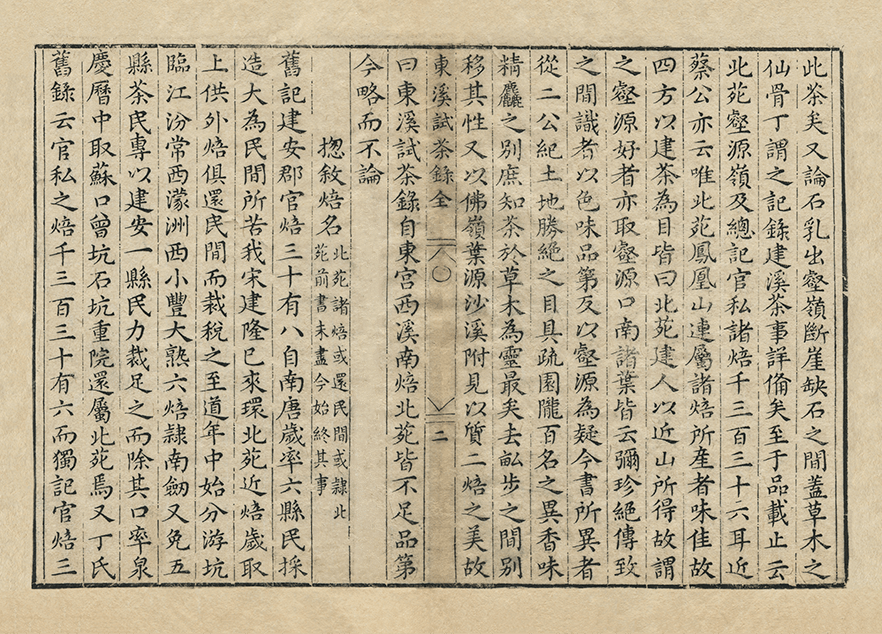 此茶矣又論石乳出壑嶺斷崖缺石之間蓋草木之
仙骨丁謂之記錄建溪茶事詳備矣至于品載止云
北苑壑源嶺及總記官私諸焙千三百三十六耳近
蔡公亦云唯北苑鳳凰山連屬諸焙所產者味佳故
四方以建茶為目皆曰北苑建人以近山所得故謂
之壑源好者亦取壑源口南諸葉皆云彌珍絕傳致
之間識者以色味品第反以壑源為疑今書所異者
從二公紀土地勝絕之目具疏園隴百名之異香味
精麤之別庶知茶於草木為靈最矣去畝步之間別
移其性又以佛嶺葉源沙溪附見以質二焙之美故
東溪試茶錄全
二
曰東溪試茶錄自東宮西溪南焙北苑皆不足品第
今略而不論
揔敘焙名
北苑諸焙或還民間或隸北
苑前書未盡今始終其事
舊記建安郡官焙三十有八自南唐歲率六縣民採
造大為民間所苦我宋建隆已來環北苑近焙歲取
上供外焙俱還民間而裁稅之至道年中始分游坑
臨江汾常西濛洲西小豐大熟六焙隸南劒又免五
縣茶民專以建安一縣民力裁足之而除其口率泉
慶曆中取蘇口曾坑石坑重院還屬北苑焉又丁氏
舊錄云官私之焙千三百三十有六而獨記官焙三